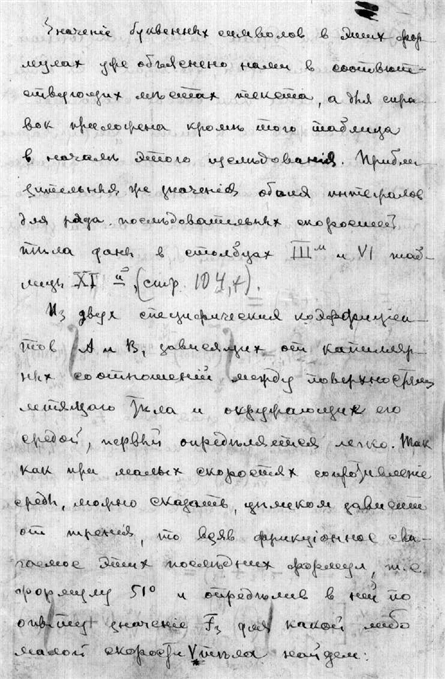 Значеніе буквенныхъ символовъ в этих фор
мулах уже объяснено нами в соотвѣт
ствующих мѣстах текста, а для спра
вок приложена кромѣ того таблица
в началѣ этого изслѣдованія. Прибли
зительныя же значенія обоих интегралов
для ряда последовательных скоростей
тѣла даны в столбцах III м и VI таб
лицы XI й, (стр. 104,+).
Из двух специфических коэффиціен
тов А и В, зависящих от капилляр
ных соотношений между поверхностями
летящаго тѣла и окружающих его
средой, первый опредѣляется легко. Так
как при малых скоростях сопротивление
среды, можно сказать, цѣликом зависит
от тренія, то взяв фрикціонное сла
гаемое этих послѣдних формул, т.е.
формулу 51° и опредѣлив в ней по
опыту значеніе F₃ для какой либо
малой скорости V тѣла найдем: